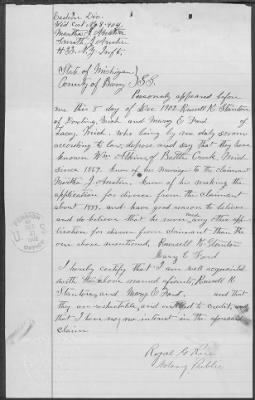 Eastern Div.
Wid Cert No 8.404.
Martha J Austin
Smith J Austin
H 33. N.Y. Inft.
State of Michigan
County of Barry } S.S.
Personally appeared before
me this 5 day of Dec 1902 Russell K. Stanton
of Dowling, Mich and Mary E Ford of
Lacey Mich. who being by me duly sworn
according to law, depose and say that they have
known Wm Atkins of Battle Creek, Mich.
since 1869. Knew of his marriage to the claimant
Martha J. Austin. Knew of his making the
application for divorce from the claimant
about 1877, and have good reason to believe
and do believe that he never made any other app-
lication for divorce from claimant than the
one above mentioned. Russell K Stanton
Mary E Ford
I hereby certify that I am well acquainted
with the above named affiants, Russell K
Stanton, and Mary E Ford. and that
they are respectable, and entitled to credit, and
that I have no interest in the aforesaid
claim
Royal G Rice
Notary Public